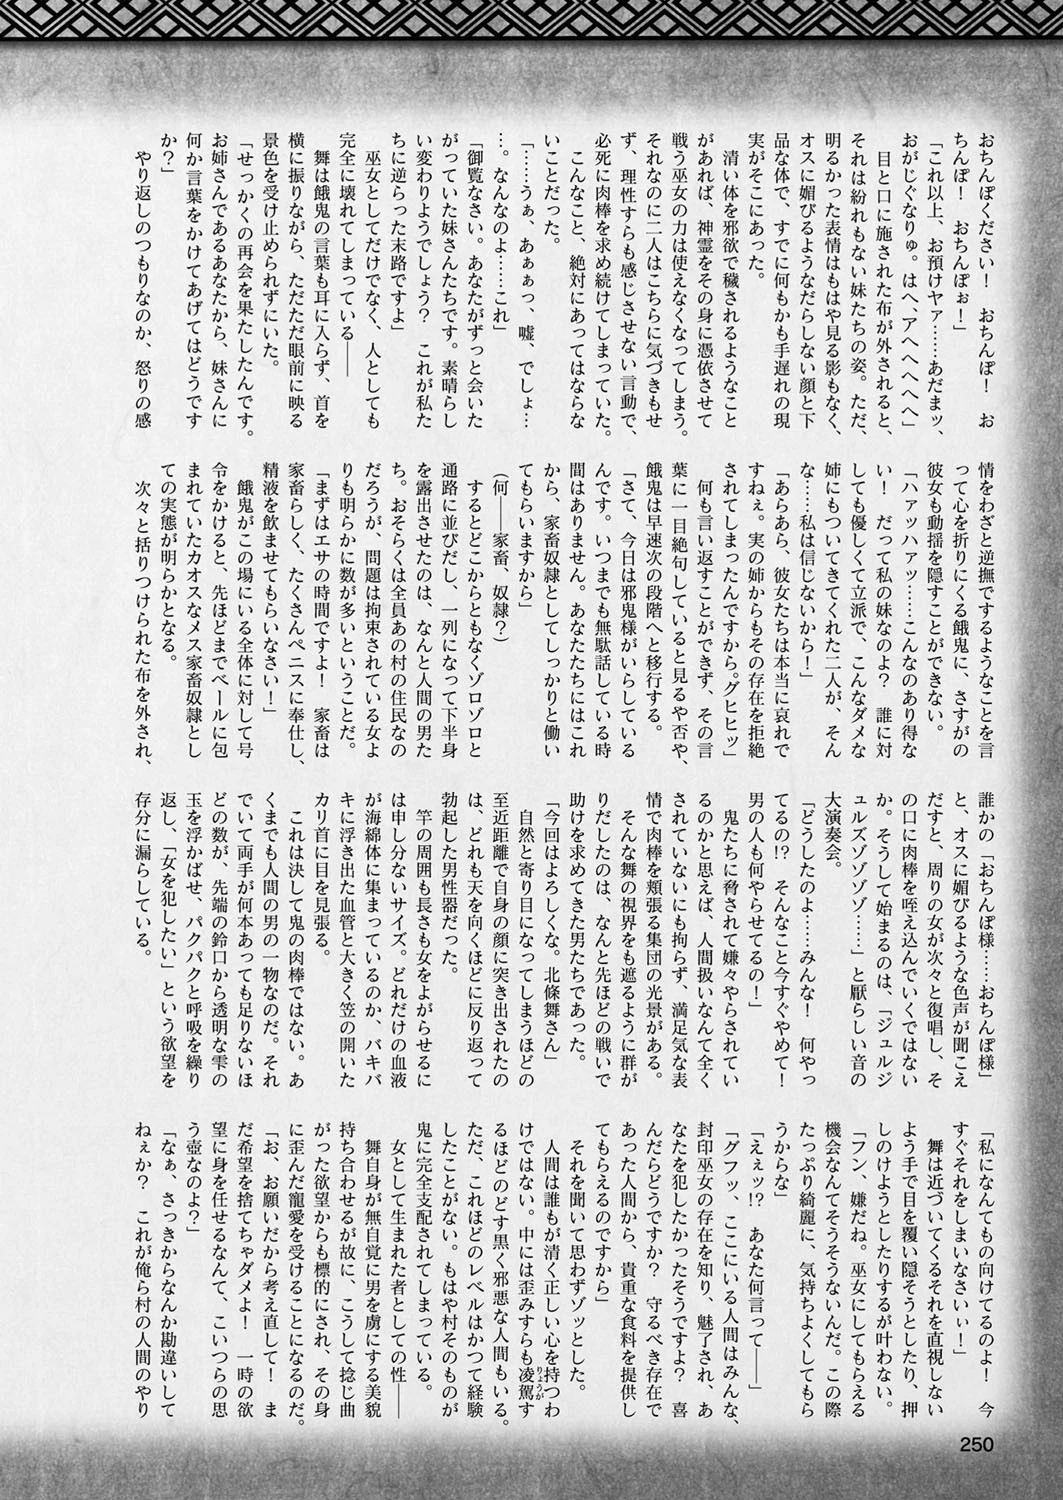 おちんぽください！　おちんぽ！　お
ちんぽ！　おちんぽぉ！」
「これ以上、お預けヤァ……あだまッ、
おがじぐなりゅ。はへ、アヘヘヘヘへ」
　目と口に施された布が外されると、
それは紛れもない妹たちの姿。ただ、
明るかった表情はもはや見る影もなく、
オスに媚びるようなだらしない顔と下
品な体で、すでに何もかも手遅れの現
実がそこにあった。
　清い体を邪欲で穢されるようなこと
があれば、神霊をその身に憑依させて
戦う巫女の力は使えなくなってしまう。
それなのに二人はこちらに気づきもせ
ず、理性すらも感じさせない言動で、
必死に肉棒を求め続けてしまっていた。
　こんなこと、絶対にあってはならな
いことだった。
「……うぁ、あぁぁっ、嘘、でしょ…
…。なんなのよ……これ」
「御覧なさい。あなたがずっと会いた
がっていた妹さんたちです。素晴らし
い変わりようでしょう？　これが私た
ちに逆らった末路ですよ」
　巫女としてだけでなく、人としても
完全に壊れてしまっている――
　舞は餓鬼の言葉も耳に入らず、首を
横に振りながら、ただただ眼前に映る
景色を受け止められずにいた。
「せっかくの再会を果たしたんです。
お姉さんであるあなたから、妹さんに
何か言葉をかけてあげてはどうです
か？」
　やり返しのつもりなのか、怒りの感
情をわざと逆撫でするようなことを言
って心を折りにくる餓鬼に、さすがの
彼女も動揺を隠すことができない。
「ハァッハァッ……こんなのあり得な
い！　だって私の妹なのよ？　誰に対
しても優しくて立派で、こんなダメな
姉にもついてきてくれた二人が、そん
な……私は信じないから！」
「あらあら、彼女たちは本当に哀れで
すねぇ。実の姉からもその存在を拒絶
されてしまったんですから。グヒヒッ」
　何も言い返すことができず、その言
葉に一目絶句していると見るや否や、
餓鬼は早速次の段階へと移行する。
「さて、今日は邪鬼様がいらしている
んです。いつまでも無駄話している時
間はありません。あなたたちにはこれ
から、家畜奴隷としてしっかりと働い
てもらいますから」
（何――家畜、奴隷？）
　するとどこからともなくゾロゾロと
通路に並びだし、一列になって下半身
を露出させたのは、なんと人間の男た
ち。おそらくは全員あの村の住民なの
だろうが、問題は拘束されている女よ
りも明らかに数が多いということだ。
「まずはエサの時間ですよ！　家畜は
家畜らしく、たくさんペニスに奉仕し、
精液を飲ませてもらいなさい！」
　餓鬼がこの場にいる全体に対して号
令をかけると、先ほどまでベールに包
まれていたカオスなメス家畜奴隷とし
ての実態が明らかとなる。
　次々と括りつけられた布を外され、
誰かの「おちんぽ様……おちんぽ様」
と、オスに媚びるような色声が聞こえ
だすと、周りの女が次々と復唱し、そ
の口に肉棒を咥え込んでいくではない
か。そうして始まるのは、「ジュルジ
ュルズゾゾゾゾ……」と厭らしい音の
大演奏会。
「どうしたのよ……みんな！　何やっ
てるの!?　そんなこと今すぐやめて！
男の人も何やらせてるの！」
　鬼たちに脅されて嫌々やらされてい
るのかと思えば、人間扱いなんて全く
されていないにも拘らず、満足気な表
情で肉棒を頬張る集団の光景がある。
　そんな舞の視界をも遮るように群が
りだしたのは、なんと先ほどの戦いで
助けを求めてきた男たちであった。
「今回はよろしくな。北條舞さん」
　自然と寄り目になってしまうほどの
至近距離で自身の顔に突き出されたの
は、どれも天を向くほどに反り返って
勃起した男性器だった。
　竿の周囲も長さも女をよがらせるに
は申し分ないサイズ。どれだけの血液
が海綿体に集まっているのか、バキバ
キに浮き出た血管と大きく笠の開いた
カリ首に目を見張る。
　これは決して鬼の肉棒ではない。あ
くまでも人間の男の一物なのだ。それ
でいて両手が何本あっても足りないほ
どの数が、先端の鈴口から透明な雫の
玉を浮かばせ、パクパクと呼吸を繰り
返し、「女を犯したい」という欲望を
存分に漏らしている。
「私になんてもの向けてるのよ！　今
すぐそれをしまいなさいぃ！」
　舞は近づいてくるそれを直視しない
よう手で目を覆い隠そうとしたり、押
しのけようとしたりするが叶わない。
「フン、嫌だね。巫女にしてもらえる
機会なんてそうそうないんだ。この際
たっぷり綺麗に、気持ちよくしてもら
うからな」
「えぇッ!?　あなた何言って――」
「グフッ、ここにいる人間はみんな、
封印巫女の存在を知り、魅了され、あ
なたを犯したかったそうですよ？　喜
んだらどうですか？　守るべき存在で
あった人間から、貴重な食料を提供し
てもらえるのですから」
　それを聞いて思わずゾッとした。
　人間は誰もが清く正しい心を持つわ
けではない。中には歪みすらも凌駕（りょうが）す
るほどのどす黒く邪悪な人間もいる。
ただ、これほどのレベルはかつて経験
したことがない。もはや村そのものが
鬼に完全支配されてしまっている。
　女として生まれた者としての性――
　舞自身が無自覚に男を虜にする美貌
持ち合わせるが故に、こうして捻じ曲
がった欲望からも標的にされ、その身
に歪んだ寵愛を受けることになるのだ。
「お、お願いだから考え直して！　ま
だ希望を捨てちゃダメよ！　一時の欲
望に身を任せるなんて、こいつらの思
う壺なのよ？」
「なぁ、さっきからなんか勘違いして
ねぇか？　これが俺ら村の人間のやり
250